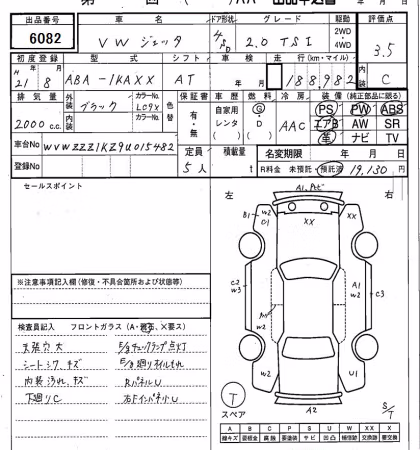 出品番号 車名 ドア形状 グレード 駆動 評価点
6082 VW ジェッタ 4/5D 2.0 TSI 2WD・4WD 3.5
初度登録 型式 シフト 車検 走行(km・マイル) 内装
H 21年 8月 ABA-1KAXX AT 年 月 188,982 C
排気量 外装 カラーNo. 色替 保証書 車歴 燃料 冷房 装備 (純正部品に限る)
ブラック LC9X 有・無 自家用 G PS PW ABS
2000 c.c. 内装 カラーNo. レンタ D AAC エアB AW SR
革 ナビ TV
車台No WVWZZZ1KZ9U015482 定員 積載量 名変期限 年 月 日
登録No 5人 t R料金 未預託・預託済 19,130円
セールスポイント
左 右
※注意事項記入欄(修復・不具合箇所および状態等)
検査員記入 フロントガラス(A・飛石、X要ス)
天張穴大 E/gチェックランプ点灯
シートシワ、キズ E/g廻りオイルもれ
内装汚れ、キズ RパネルU
下廻りC 右FインパネルU
A1
B1 W2 C1 XX XX
C2 W3 A1 W2 C3
W2 W2 U1
A2
T スペア S/T
A B C P S U W X XX
線キズ 要板金 腐蝕 要塗装 サビ 凹凸 補修跡 要交換 交換跡